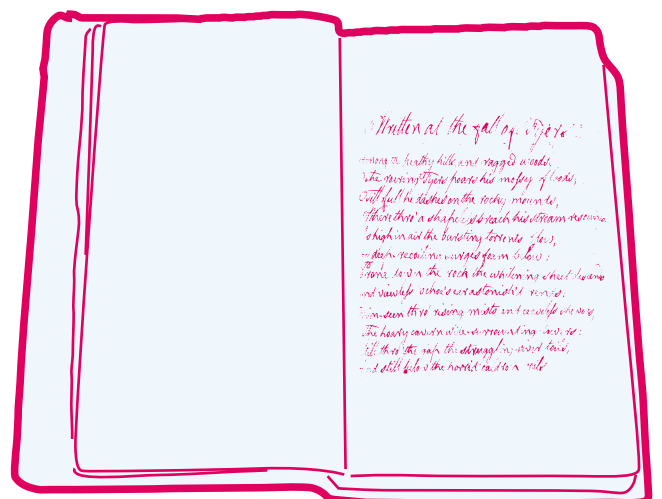 Written at the fall of Fyers
Among the heathy hills and ragged woods,
The roaring Fyers pours his mossy floods;
Till full he dashes on the rocky mounds,
Where thro' a shapeless breach his stream resounds
As high in air the bursting torrents flow,
As deep recoiling surges foam below:
Prone down the rock the whitening sheet descends
And viewless echo's ear astonish'd rends:
Dim-seen thro' rising mists and ceaseless showers,
The hoary cavern wide-surrounding lowers:
Still thro' the gap the struggling river toils,
And still below the horrid caldron